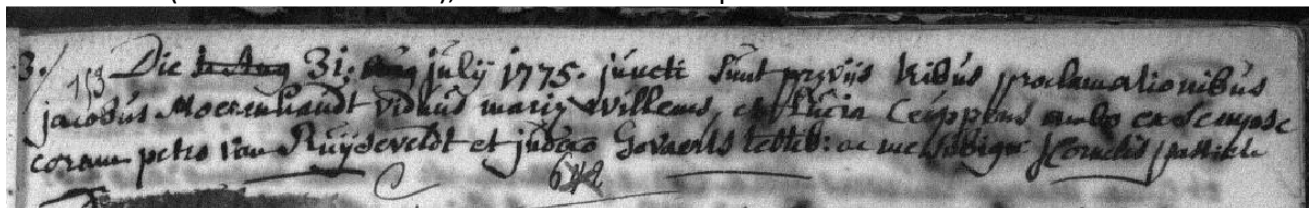 3./
153 Die 31. july 1775. juncti sunt prævijs tribus proclamationibus
jacobus Moerenhaudt viduus mariæ Willems, et Lucia Ceuppens ambo ex
coram petro van Ruijseveldt et Govaerts testib: ac me J Cornelis
642